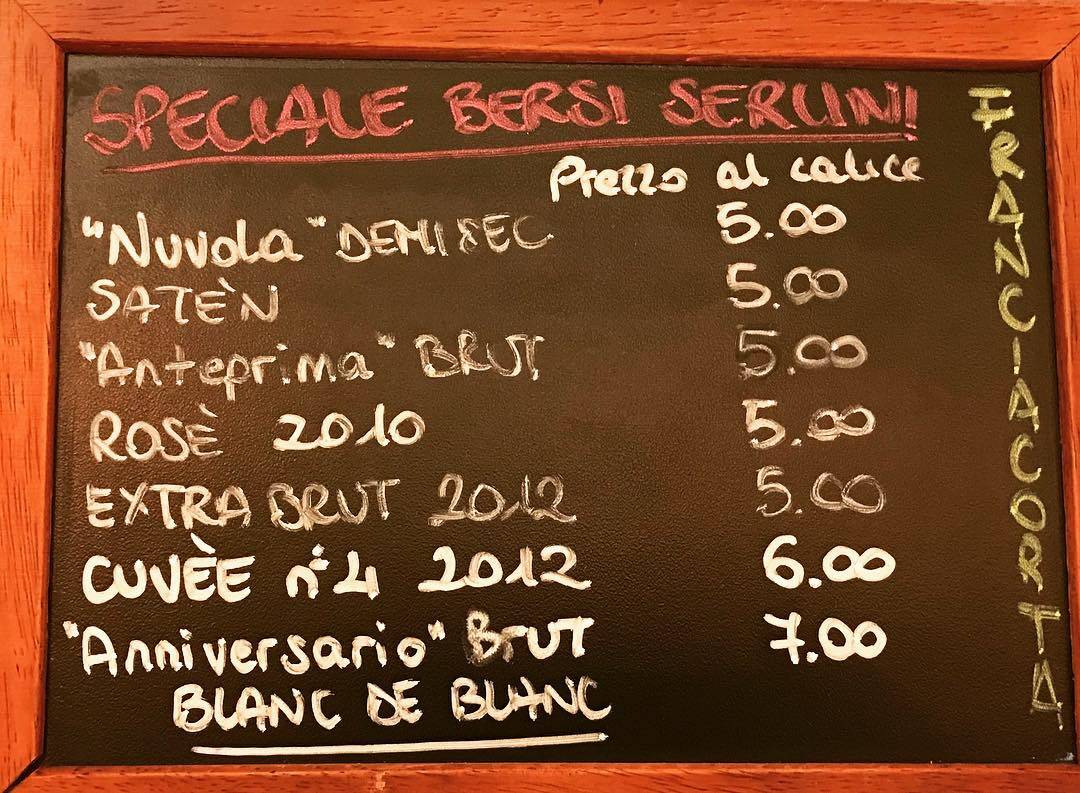 SPECIALE BERSI SERLINI
Prezzo al calice
"Nuvola" DEMISEC 5.00
SATÈN 5.00
"Anteprima" BRUT 5.00
ROSÈ 2010 5.00
EXTRA BRUT 2012 5.00
CUVÈE n°4 2012 6.00
"Anniversario" BRUT 7.00
BLANC DE BLANC
FRANCIACORTA